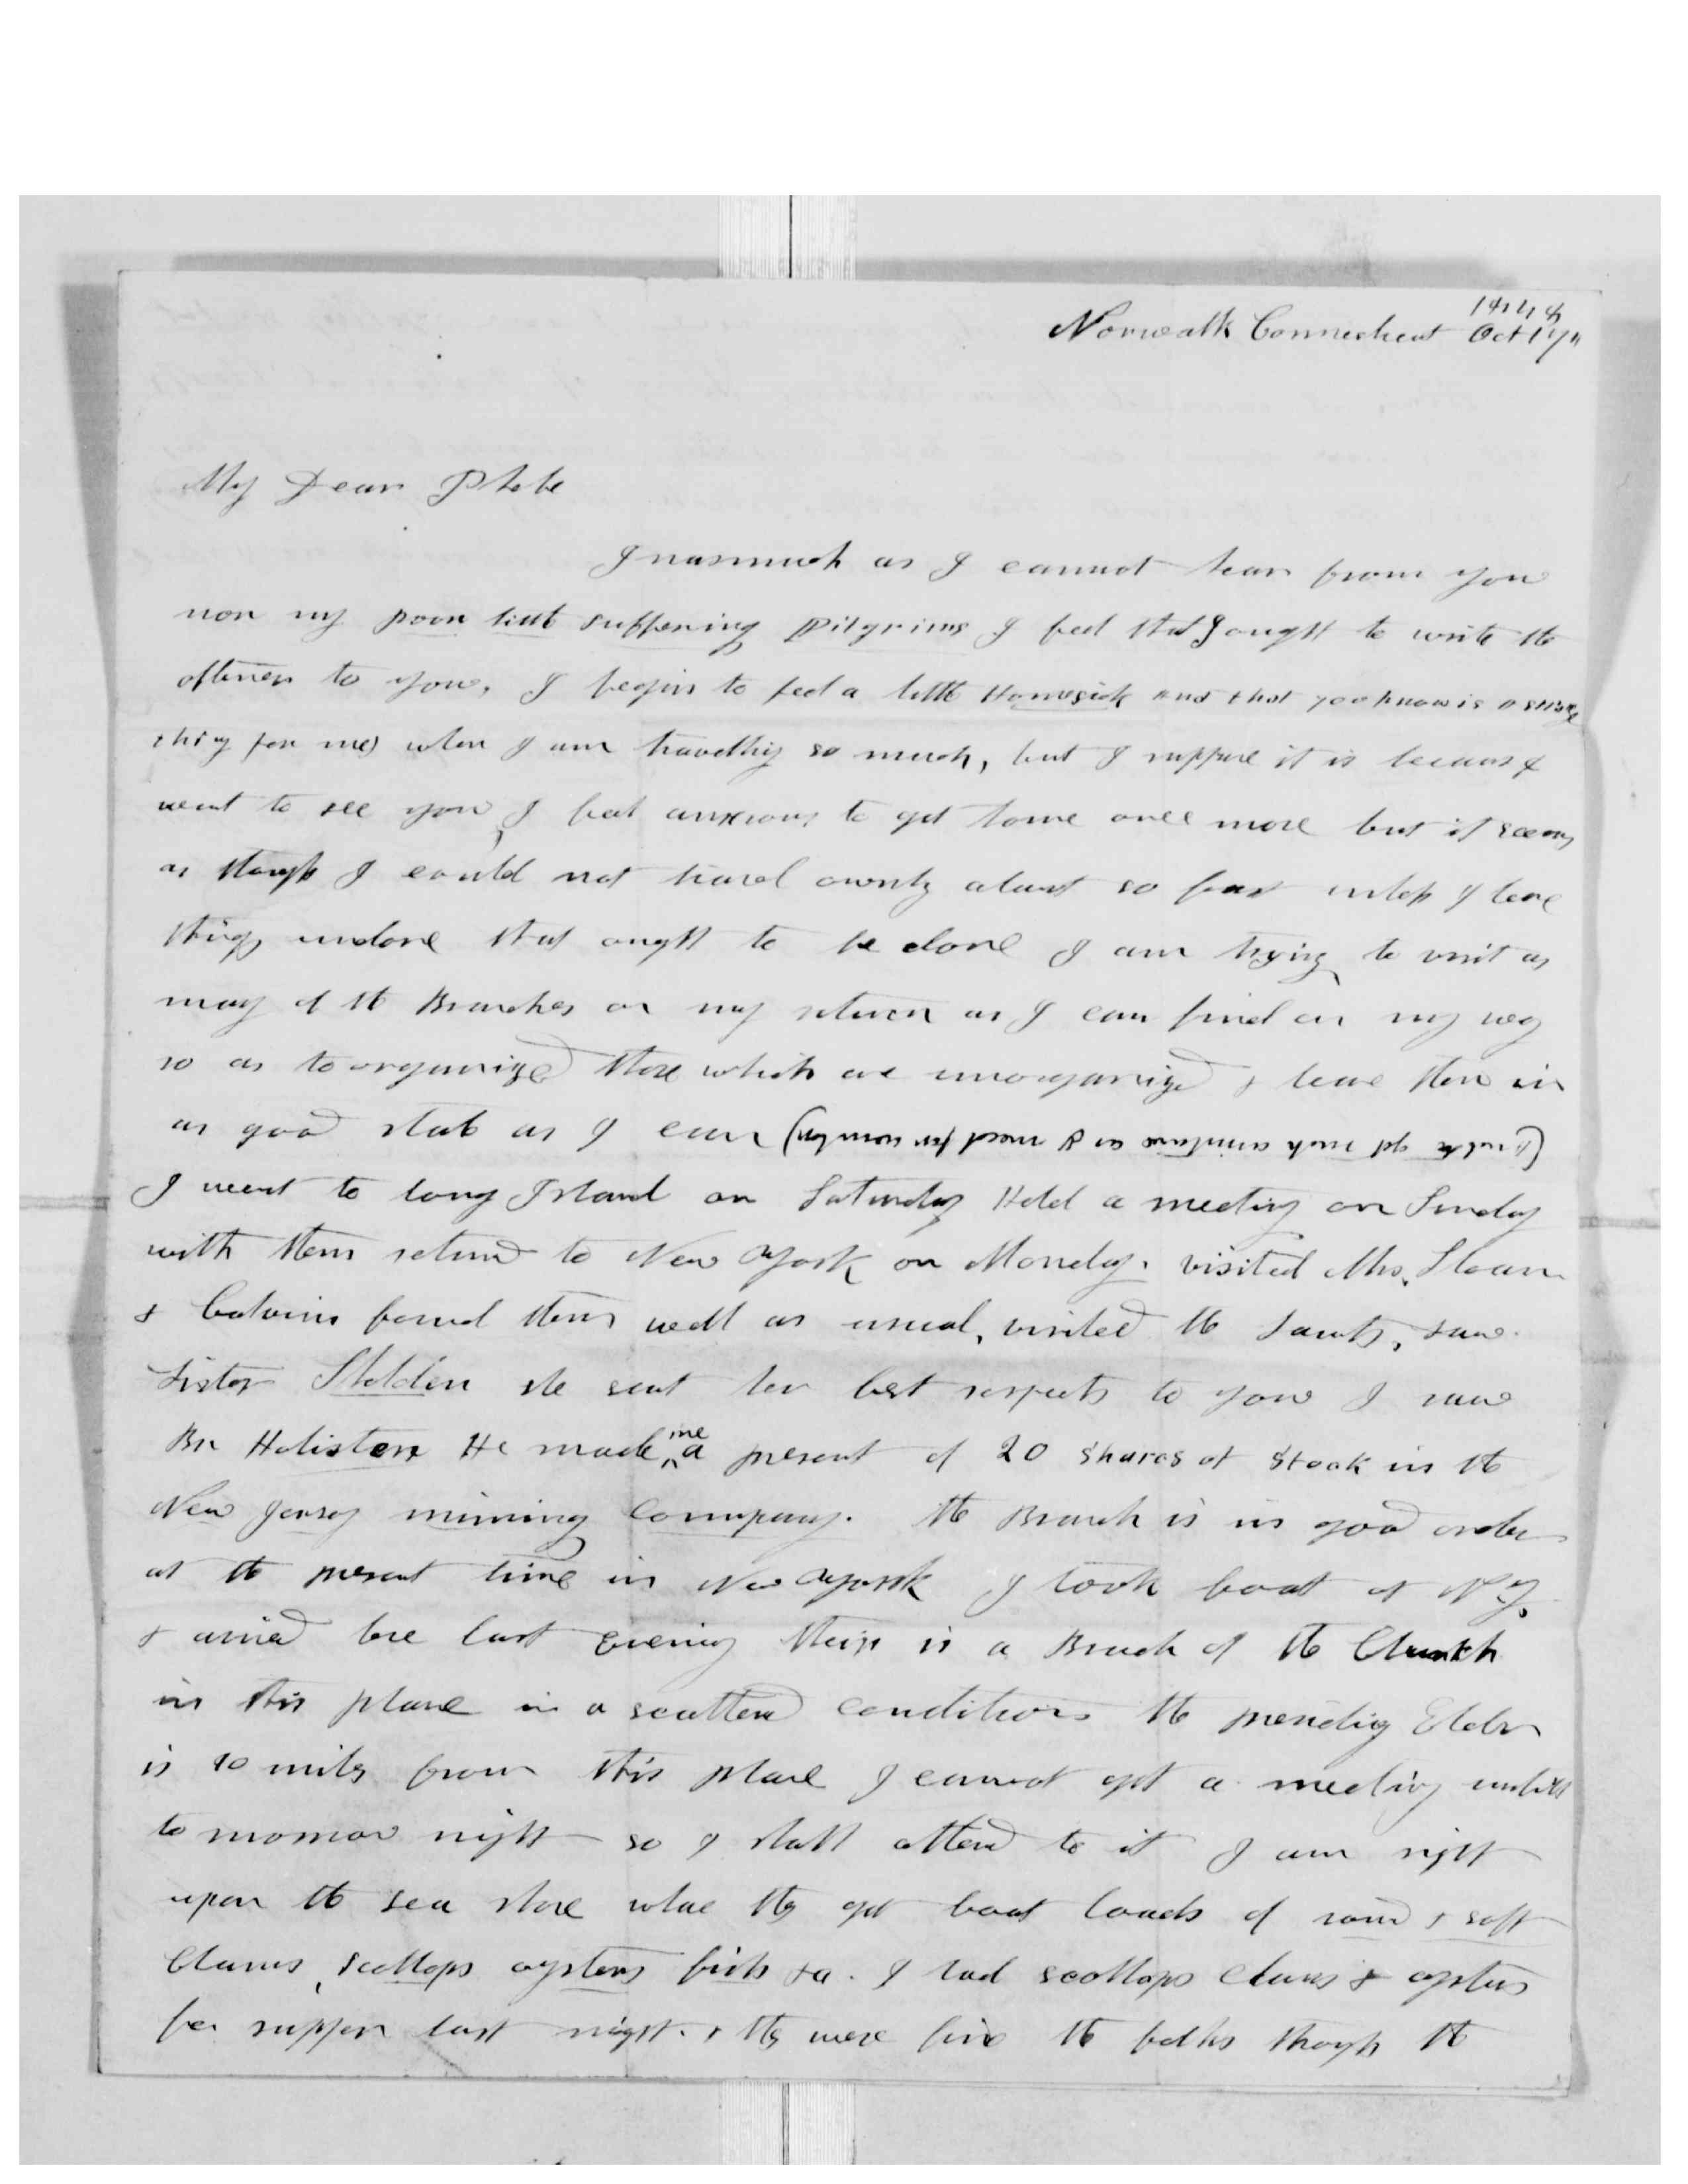 1844
Norwalk Connecticut Oct 17"
My Dear Phebe
Inasmuch as I cannot hear from you
nor my poor little suffering pilgrims I feel that I ought to write the
oftener to you, I begin to feel a little Homesick and that you know is a strange
thing for me) when I am travelling so much, but I suppose it is because I
want to see you, I feel anxious to get home once more but it seems
as though I could not travel about so fast unless I leave
things undone that ought to be done I am trying to visit as
many of the Branches on my return as I can find on my way
so as to organized those which are unorganized & leave them in
as good state as I can (& get much assistance as I need for
I went to long Island on Saturday Held a meeting on Sunday
with them returnd to New York on Monday. visited Mrs. Sloan
& Calvins found them well as usual, visited the Saints, saw
Sister Shelden she sent her best respects to you I saw
Br Holisten He made me a present of 20 shares of Stock in the
New Jersey mining Company. the Branch is in good order
at the present time in New York I took boat at N.Y.
& arived here last evening their is a Branch of the Church
in this place in a scattered condition the presiding Elder
is 10 miles from this place I cannot get a meeting untill
to morrow night so I shall attend to it I am right
upon the sea shore whare they get boat loads of round & soft
Clams, scollops oysters fish &c. I had scollops clams & oysters
for supper last night. & they were fine the folks though the